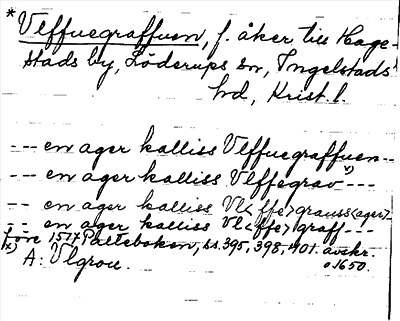 * Vlffuegraffuen, f. åker till Hage-
stads by, Löderups sn, Ingelstads
hd, Krist. l.
--- en ager kalliss Vlffuegraffuen---
--- en ager kalliss Vlffegrav x) ---
-- en ager kalliss Vl<ffe>grauss<ager>
-- en ager kalliss Vl<ffe>graff---
före 1517 Pallebokon, ss. 395, 398, 401. avskr.
o. 1650.
x) A: Vlgrou.